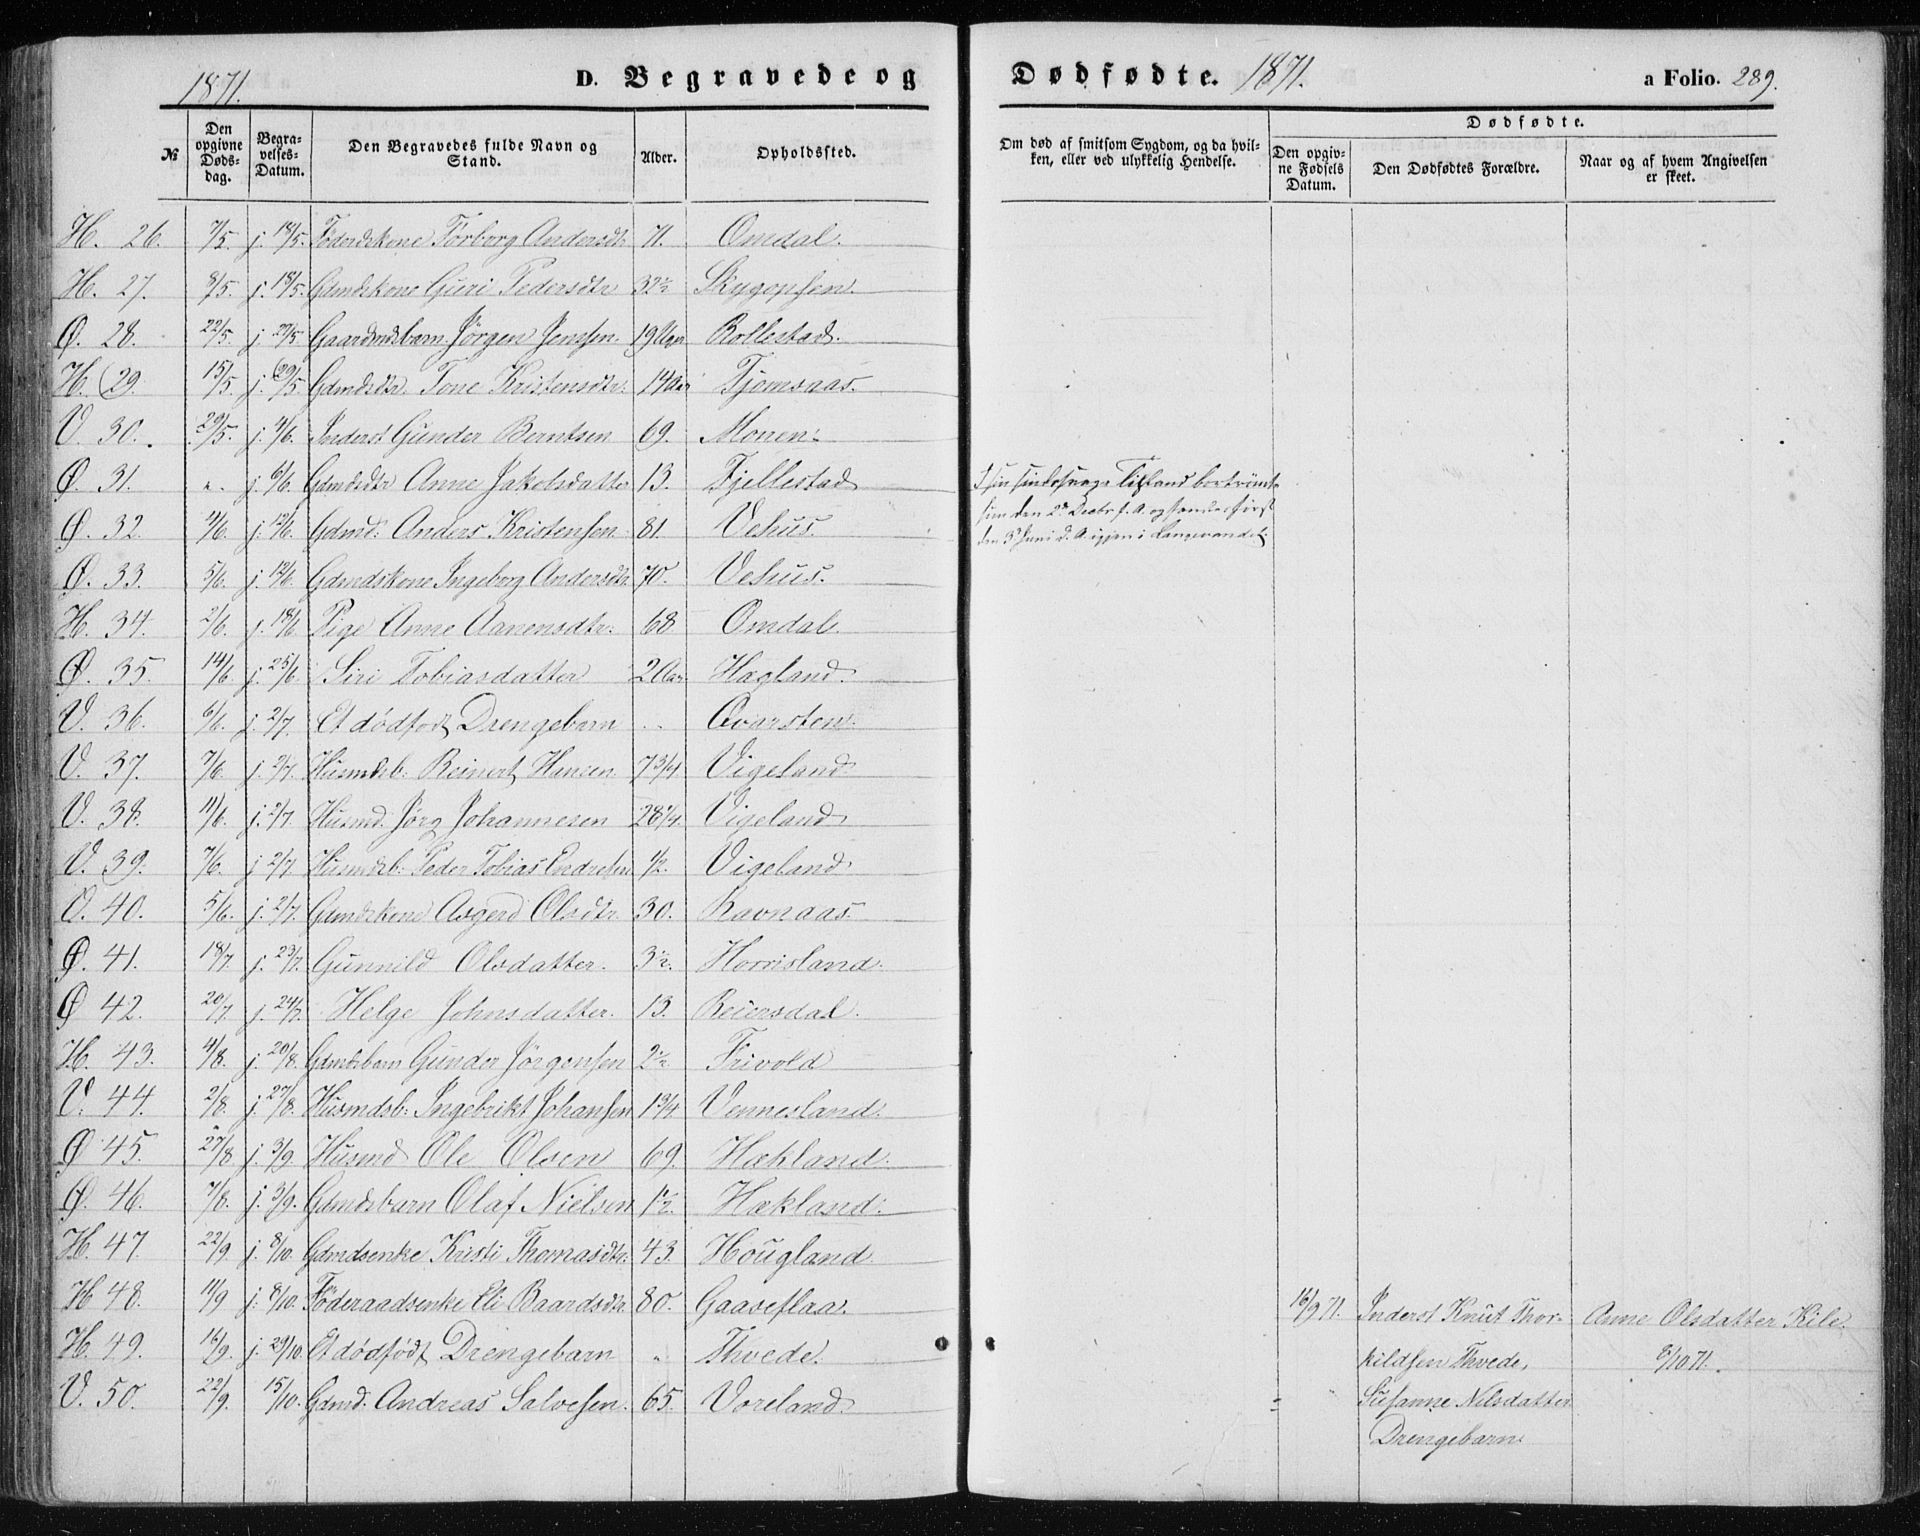 1871. D. Begravede og Dødfødte. 1871. a Folio. 289.
№ Den opgivne Døds-dag. Begra-velses-Datum. Den Begravedes fulde Navn og Stand. Alder. Opholdssted. Om død af smitsom Sygdom, og da hvil-ken, eller ved ulykkelig Hendelse. Dødfødte. Den opgiv-ne Fødsels Datum. Den Dødfødtes Forældre. Naar og af hvem Angivelsen er skeet.
H. 26. 7/5. j. 18/5. Föderdskone Törborg Andersdtr 71. Omdal.
H. 27. 8/5. j. 18/5. Gdmdskone Guri Pedersdtr 32½
Ø. 28. 22/5 j. 27/5. Gaardmdsbarn Jörgen Jenssen. 19 Uger Rollestad.
H. (29. 15/5. j. 29/5. Gdmdsdtr. Tone Kristensdtr. 14 Aar Tjomsaas.
V. 30. 29/5. j. 4/6. Inderst Gunder Berntsen 69. Monen.
Ø. 31. ". j. 6/6. Gdmdsdtr Anne Jakobsdatter 13. Fjellestad I sin sindssvage Tilstand bortrömt
Ø. 32. 4/6. j. 12/6. Gdmd: Anders Kristensen. 81. Vehus. hun den 2den Decbr f. A. og fandtes först
den 3die Juni d. A. igjen i Langevandet.
Ø. 33. 5/6. j. 12/6. Gdmdskone Ingeborg Andersdtr. 70. Vehus.
H. 34. 2/6. j. 18/6. Pige Anne Aanensdtr. 68 Omdal.
Ø. 35. 14/6 j. 25/6. Siri Tobiasdatter 2 Aar Hagland.
V. 36. 6/6. j. 2/7. Et dödfödt Drengebarn " Qvarsten.
V. 37. 7/6. j. 2/7. Husmdsb: Reinert Hansen 7 3/4 Vigeland.
V. 38. 11/6 j. 2/7. Husmd. Jörg Johannesen 28 1/4. Vigeland
V. 39. 7/6. j. 2/7. Husmdsb: Peder Tobias Endresen 1/2. Vigeland.
V. 40. 5/6. j. 2/7. Gdmdskone Asgerd Olsdtr. 30. Ravnaas.
Ø. 41. 18/7. j. 23/7. Gunnild Olsdatter. 3½. Horrisland.
Ø 42. 20/7. j. 24/7. Helge Johnsdatter. 13. Reiersdal.
H. 43. 4/8. j. 20/8. Gdmdsbarn Gunder Jörgensen 2½ Frivold
V. 44. 2/8. j. 27/8. Husmdsb: Ingebrikt Johansen 1 3/4. Vennesland.
Ø 45. 27/8 j. 3/9. Husmd Ole Olsen 69. Hækland.
Ø. 46. 7/8. j. 3/9. Gdmdsbarn Olaf Nielsen 1½. Hækland.
H. 47. 22/9. j. 8/10. Gdmdsenke Kirsti Thomasdtr. 43. Hougland.
H 48. 11/9 j. 8/10. Föderaadsenke Eli Baardsdtr 80. Gaaseflaa. 16/9 71. Inderst Knut Thor- Anne Olsdatter Kile
H. 49. 16/9. j. 29/10. Et dödfödt Drengebarn " Thvede. kildsen Thvede, 8/10 71.
V. 50. 22/9. 15/10. Gdmd. Andreas Salvesen. 65. Voreland. Susanne Nilsdatter
Drengebarn.